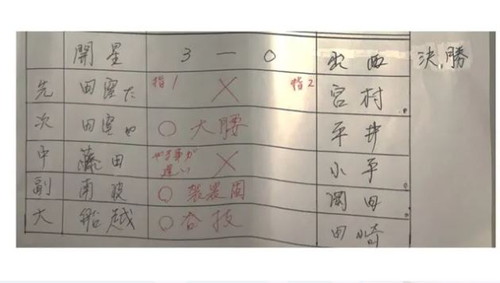 開星 3 — 0 出西 決勝
先 田窪た 指1 × 指2 宮村
次 田窪や ○ 大腰 平井
中 藤田 やる事が遅い! × 小平
副 南波 ○ 袈裟固 岡田
大 船越 ○ 合技 田崎